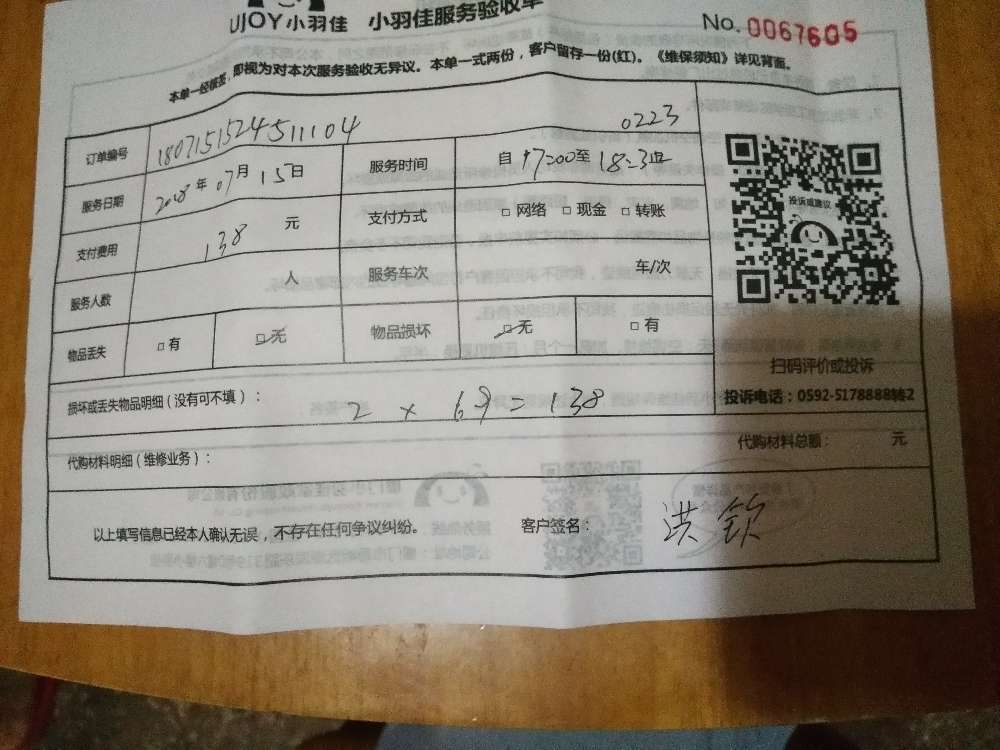 UJOY小羽佳 小羽佳服务验收单
No. 0067605
本单一经核签，即视为对本次服务验收无异议。本单一式两份，客户留存一份(红)。《维保须知》详见背面。
订单编号 1807151524511104 0223
服务日期 2018年07月15日 服务时间 自17:00至18:3止
支付费用 138 元 支付方式 □ 网络 □ 现金 □ 转账
服务人数 人 服务车次 车/次
物品丢失 □ 有 □ 无 物品损坏 □ 无 □ 有
投诉或建议
扫码评价或投诉
投诉电话：0592-5178888转2
损坏或丢失物品明细（没有可不填）： 2 × 69 = 138
代购材料明细（维修业务）： 代购材料总额： 元
以上填写信息已经本人确认无误，不存在任何争议纠纷。 客户签名： 洪钦